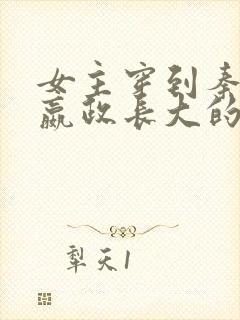 女主穿到秦
嬴政长大的
犁天1